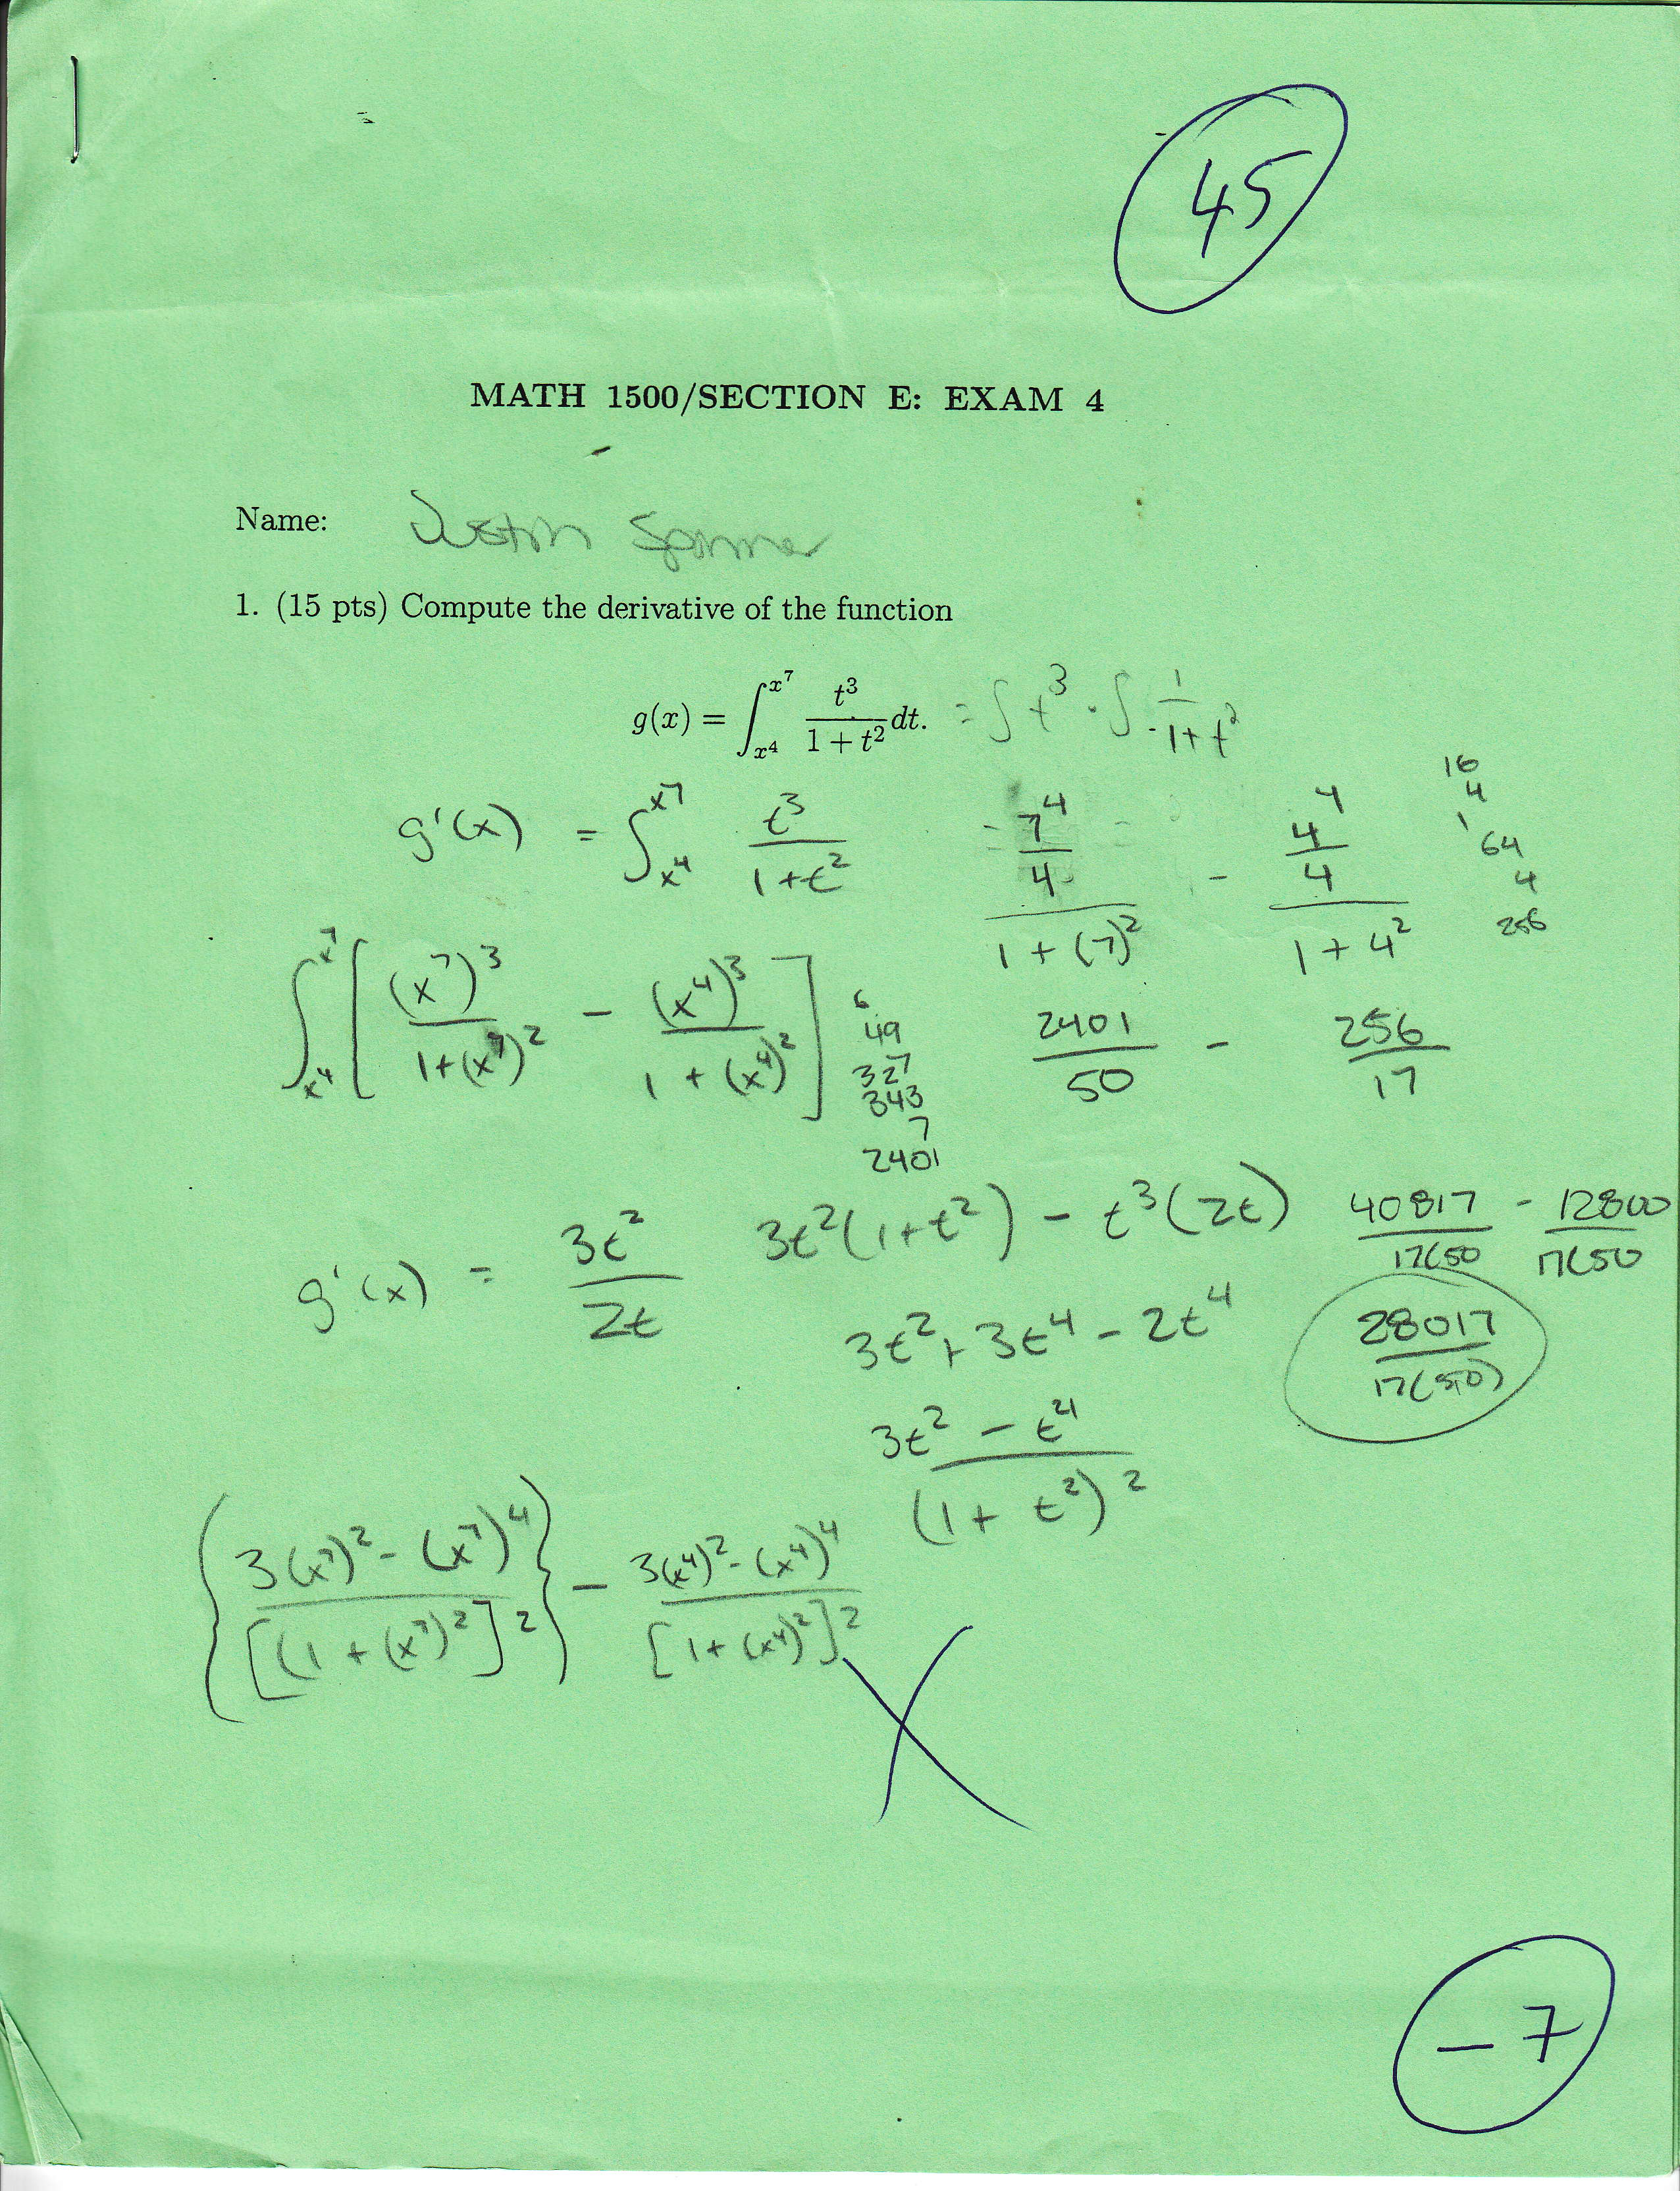 45
MATH 1500/SECTION E: EXAM 4
Name:
1. (15 pts) Compute the derivative of the function
g(x) = ∫_{x^4}^{x^7} t^3/(1 + t^2) dt. = ∫ t^3 · ∫ 1/(1+t^2)
g'(x) = ∫_{x^4}^{x^7} t^3/(1+t^2)
(7^4/4)/(1+(7)^2) - (4^4/4)/(1+4^2)
16
4
1
64
4
256
∫_{x^4}^{x^7} [ (x^7)^3/(1+(x^7)^2) - (x^4)^3/(1+(x^4)^2) ]
6
49
327
343
7
2401
2401/50 - 256/17
g'(x) = 3t^2/2t
3t^2(1+t^2) - t^3(2t)
40817/17(50 - 12800/17(50
3t^2 + 3t^4 - 2t^4
28017/17(50)
(3t^2 - t^4)/(1+t^2)^2
{ (3(x^7)^2 - (x^7)^4)/[(1+(x^7)^2]^2 } - (3(x^4)^2 - (x^4)^4)/[1+(x^4)^2]^2
X
-7